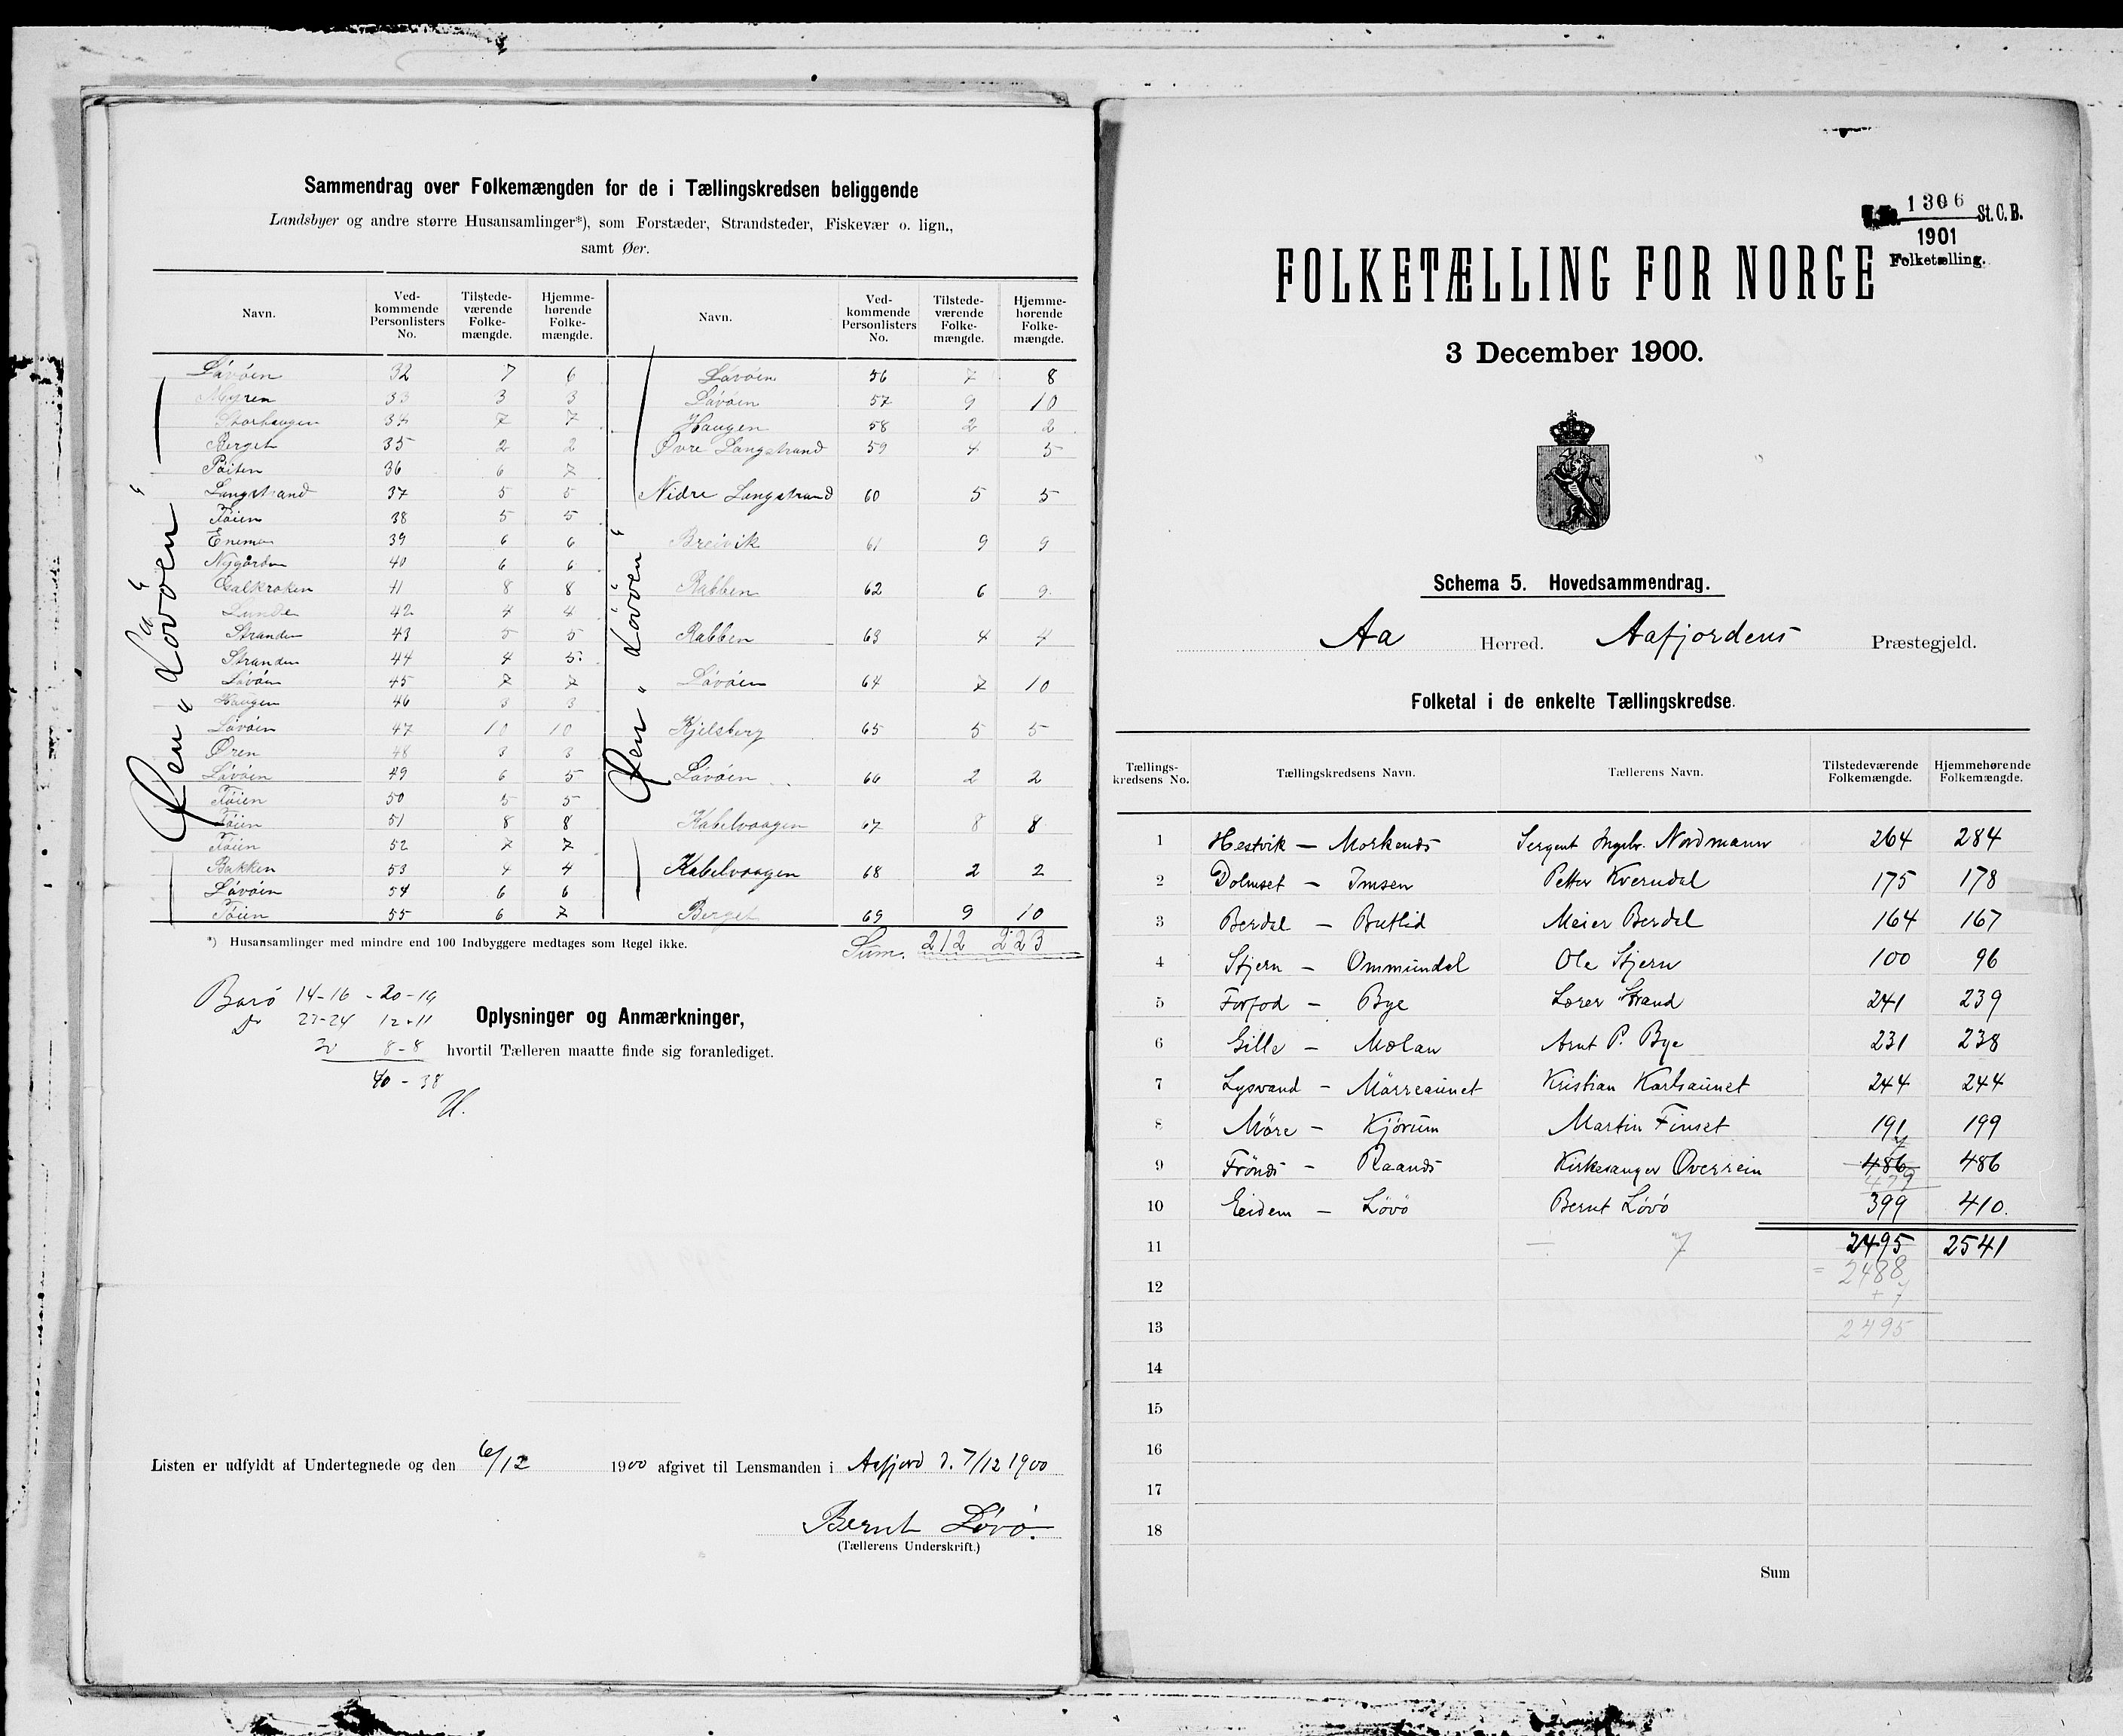 Sammendrag over Folkemængden for de i Tællingskredsen beliggende
Landsbyer og andre større Husansamlinger*), som Forstæder, Strandsteder, Fiskevær o. lign.,
samt Øer.
Navn. Ved-kommende Personlisters No. Tilstede-værende Folke-mængde. Hjemme-hørende Folke-mængde.
Øen "Løvøen"
Løvøen 32 7 6
Myren 33 3 3
Storhaugen 34 7 7
Berget 35 2 2
36 6 7
Langstrand 37 5 5
Tøien 38 5 5
Enemo 39 6 6
Nygården 40 6 6
Galkroken 41 8 8
Lunde 42 4 4
Stranden 43 5 5
Stranden 44 4 5
Løvøen 45 7 7
Haugen 46 3 3
Løvøen 47 10 10
Øren 48 3 3
Løvøen 49 6 5
Tøien 50 5 5
Tøien 51 8 8
Tøien 52 7 7
Bakken 53 4 4
Løvøen 54 6 6
Tøien 55 6 7
Navn. Ved-kommende Personlisters No. Tilstede-værende Folke-mængde. Hjemme-hørende Folke-mængde.
Øen "Løvøen"
Løvøen 56 7 8
Løvøen 57 9 10
Haugen 58 2 2
Øvre Langstrand 59 4 5
Nidre Langstrand 60 5 5
Breivik 61 9 9
Rabben 62 6 9
Rabben 63 4 4
Løvøen 64 7 10
Kjelsberg 65 5 5
Løvøen 66 2 2
Kabelvaagen 67 8 8
Kabelvaagen 68 2 2
Berget 69 9 10
Sum. 212 223
*) Husansamlinger med mindre end 100 Indbyggere medtages som Regel ikke.
Borø 14-16 - 20-19
23-24 12-11
8-8
40-38
Oplysninger og Anmærkninger,
hvortil Tælleren maatte finde sig foranlediget.
Listen er udfyldt af Undertegnede og den 6/12 1900 afgivet til Lensmanden i Aafjord d. 7/12 1900
Bernt Løvø.
(Tællerens Underskrift.)
1306 St. C. B.
1901
Folketælling.
FOLKETÆLLING FOR NORGE
3 December 1900.
Schema 5. Hovedsammendrag.
Aa Herred. Aafjordens Præstegjeld.
Folketal i de enkelte Tællingskredse.
Tællings-kredsens No. Tællingskredsens Navn. Tællerens Navn. Tilstedeværende Folkemængde. Hjemmehørende Folkemængde.
1 Hestvik — Morkends Sergent Ingebr. Nordmann 264 284
2 Dolmset — Imsen Petter Kverndal 175 178
3 Berdal — Butlid Meier Berdal 164 167
4 Stjern — Ommundal Ole Stjern 100 96
5 Forfod — Bye Lærer Strand 241 239
6 Gilde — Mælan Arnt P. Bye 231 238
7 Lysvand — Mørreaunet Kristian Karlsaunet 244 244
8 Møre — Kjørum Martin Finset 191 199
9 Frönds — Raands Kirkesanger Overrein 486 486
479
10 Eidem — Løvø Bernt Løvø 399 410.
11 — 7 2495 2541
= 2488
12 + 7
13 2495
14
15
16
17
18
Sum